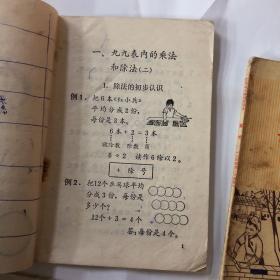 一、九九表内的乘法
和除法(二)
1. 除法的初步认识
例1. 把6本《红小兵》
平均分成2份,
每份是3本。
6本÷2=3本
被除数 除数 商
6÷2 读作6除以2。
÷ 除号
例2. 把12个乒乓球平均
分成3份,每份是
多少个?
12个÷3=4个
答:每份是4个。
1